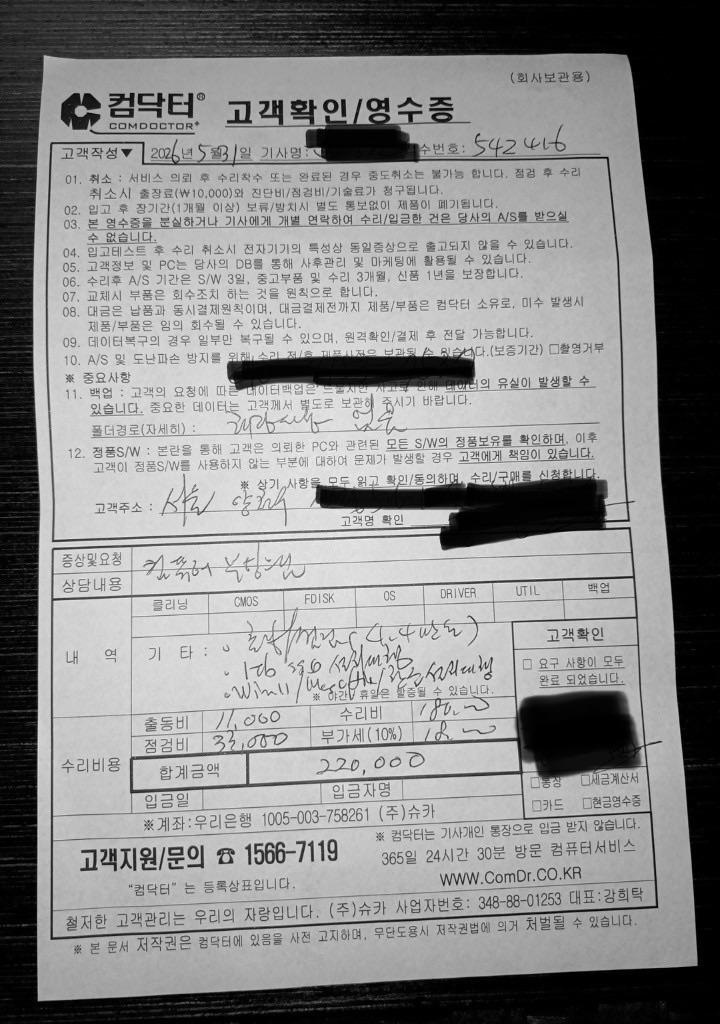 (회사보관용)
컴닥터®
COMDOCTOR+
고객확인/영수증
고객작성▼ 2026년 5월 31일 기사명: 수번호: 542416
01. 취소 : 서비스 의뢰 후 수리착수 또는 완료된 경우 중도취소는 불가능 합니다. 점검 후 수리
취소시 출장료(₩10,000)와 진단비/점검비/기술료가 청구됩니다.
02. 입고 후 장기간(1개월 이상) 보류/방치시 별도 통보없이 제품이 폐기됩니다.
03. 본 영수증을 분실하거나 기사에게 개별 연락하여 수리/입금한 건은 당사의 A/S를 받으실
수 없습니다.
04. 입고테스트 후 수리 취소시 전자기기의 특성상 동일증상으로 출고되지 않을 수 있습니다.
05. 고객정보 및 PC는 당사의 DB를 통해 사후관리 및 마케팅에 활용될 수 있습니다.
06. 수리후 A/S 기간은 S/W 3일, 중고부품 및 수리 3개월, 신품 1년을 보장합니다.
07. 교체시 부품은 회수조치 하는 것을 원칙으로 합니다.
08. 대금은 납품과 동시결제원칙이며, 대금결제전까지 제품/부품은 컴닥터 소유로, 미수 발생시
제품/부품은 임의 회수될 수 있습니다.
09. 데이터복구의 경우 일부만 복구될 수 있으며, 원격확인/결제 후 전달 가능합니다.
10. A/S 및 도난파손 방지를 위해 수리 전/후 제품사진은 보관될 수 있습니다.(보증기간) □촬영거부
※ 중요사항
11. 백업 : 고객의 요청에 따른 데이터백업은 드물지만 사고로 인해 데이터의 유실이 발생할 수
있습니다. 중요한 데이터는 고객께서 별도로 보관해 주시기 바랍니다.
폴더경로(자세히) : 저장사항 없음
12. 정품S/W : 본란을 통해 고객은 의뢰한 PC와 관련된 모든 S/W의 정품보유를 확인하며, 이후
고객이 정품S/W를 사용하지 않는 부분에 대하여 문제가 발생할 경우 고객에게 책임이 있습니다.
※ 상기 사항을 모두 읽고 확인/동의하며, 수리/구매를 신청합니다.
고객주소 : 서울
고객명 확인
증상및요청 컴퓨터 부팅안됨
상담내용
클리닝 CMOS FDISK OS DRIVER UTIL 백업
내 역 기 타 :
1Tb SSD 설치대행
Win11 설치대행
※ 야간, 휴일은 할증될 수 있습니다.
고객확인
□ 요구 사항이 모두
완료 되었습니다.
□통장 □세금계산서
□카드 □현금영수증
수리비용
출동비 11,000 수리비 180.00
점검비 33,000 부가세(10%) 18.00
합계금액 220,000
입금일 입금자명
※계좌:우리은행 1005-003-758261 (주)슈카
고객지원/문의 ☎ 1566-7119
※ 컴닥터는 기사개인 통장으로 입금 받지 않습니다.
365일 24시간 30분 방문 컴퓨터서비스
"컴닥터" 는 등록상표입니다.
WWW.ComDr.CO.KR
철저한 고객관리는 우리의 자랑입니다. (주)슈카 사업자번호: 348-88-01253 대표:강희탁
※ 본 문서 저작권은 컴닥터에 있음을 사전 고지하며, 무단도용시 저작권법에 의거 처벌될 수 있습니다.